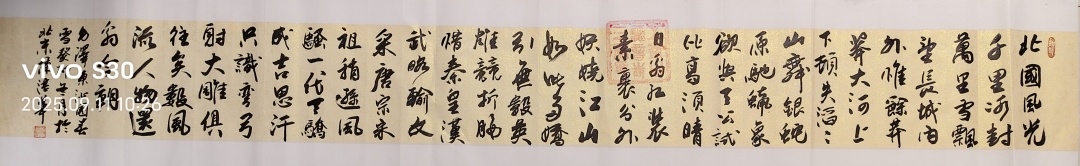 北國風光
千里冰封
萬里雪飄
望長城內
外惟餘莽
莽大河上
下頓失滔々
山舞銀蛇
原馳蠟象
欲與天公試
比高須晴
日看紅裝
素裹分外
妖嬈江山
如此多嬌
引無數英
雄競折腰
惜秦皇漢
武略輸文
采唐宗宋
祖稍遜風
騷一代天驕
成吉思汗
只識彎弓
射大雕俱
往矣數風
流人物還
看今朝
毛澤東沁園春
雪
北京
VIVO S30
2025.09.11 10:26